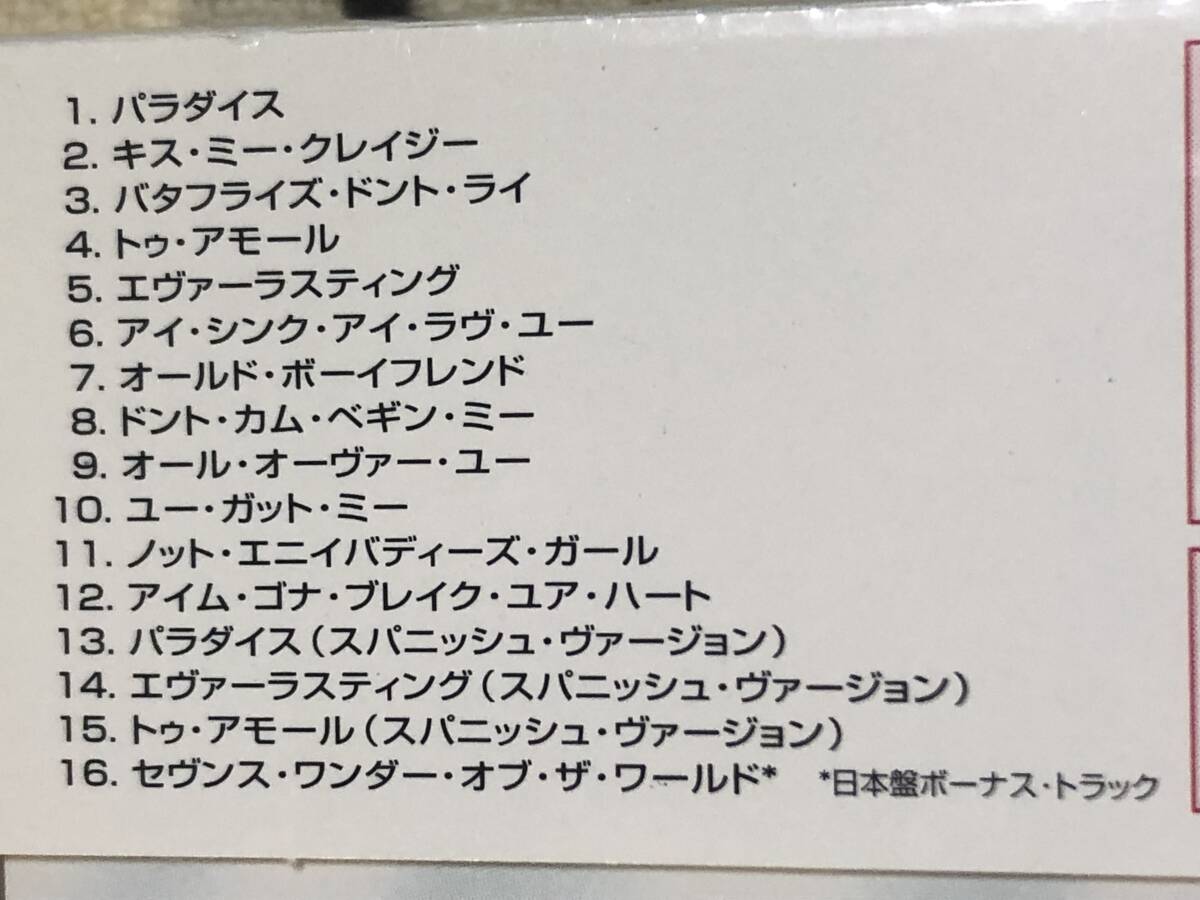 1. パラダイス
2. キス・ミー・クレイジー
3. バタフライズ・ドント・ライ
4. トゥ・アモール
5. エヴァーラスティング
6. アイ・シンク・アイ・ラヴ・ユー
7. オールド・ボーイフレンド
8. ドント・カム・ベギン・ミー
9. オール・オーヴァー・ユー
10. ユー・ガット・ミー
11. ノット・エニイバディーズ・ガール
12. アイム・ゴナ・ブレイク・ユア・ハート
13. パラダイス(スパニッシュ・ヴァージョン)
14. エヴァーラスティング(スパニッシュ・ヴァージョン)
15. トゥ・アモール(スパニッシュ・ヴァージョン)
16. セヴンス・ワンダー・オブ・ザ・ワールド* *日本盤ボーナス・トラック